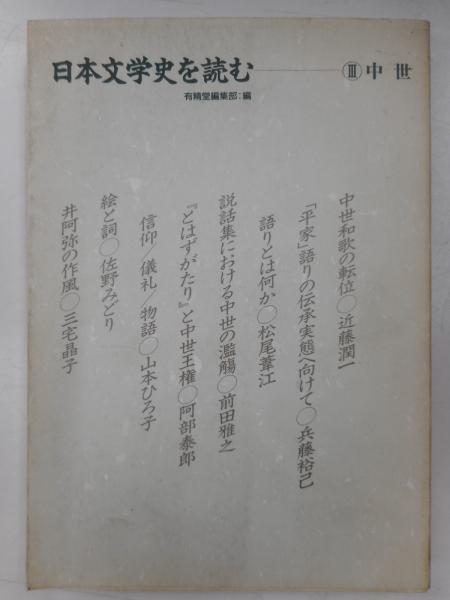 日本文学史を読む──Ⅲ中世
有精堂編集部:編
中世和歌の転位○近藤潤一
「平家」語りの伝承実態へ向けて○兵藤裕己
語りとは何か○松尾葦江
説話集における中世の濫觴○前田雅之
『とはずがたり』と中世王権○阿部泰郎
信仰/儀礼/物語○山本ひろ子
絵と詞○佐野みどり
井阿弥の作風○三宅晶子